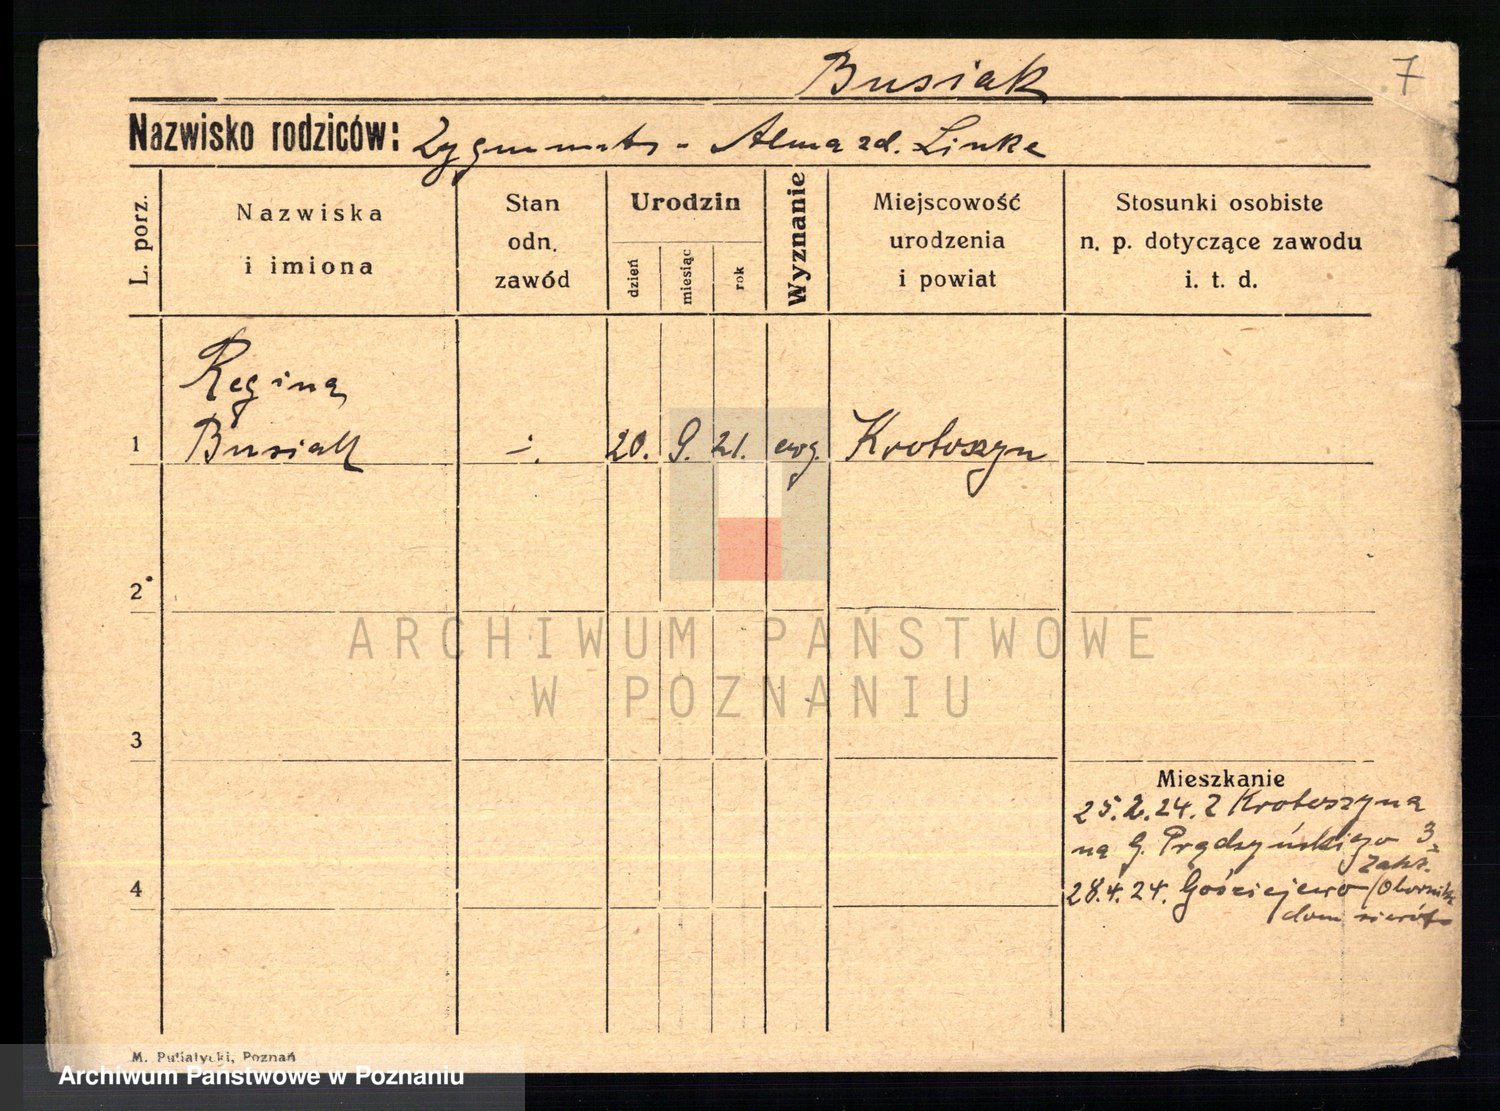 Busiak
7
Nazwisko rodziców: Zygmunt - Alma zd. Linke
L. porz.
Nazwiska
i imiona
Stan
odn.
zawód
Urodzin
dzień
miesiąc
rok
Wyznanie
Miejscowość
urodzenia
i powiat
Stosunki osobiste
n. p. dotyczące zawodu
i. t. d.
Regina
1 Busiak -. 20. 9. 21. ewg. Krotoszyn
2
ARCHIWUM PAŃSTWOWE
W POZNANIU
3
Mieszkanie
25.2.24. Z Krotoszyna
na G. Prądzyńskiego 3
Zakł.
4
28.4.24. Gościejewo / Obornik
dom sierót
M. Putiatycki, Poznań
Archiwum Państwowe w Poznaniu